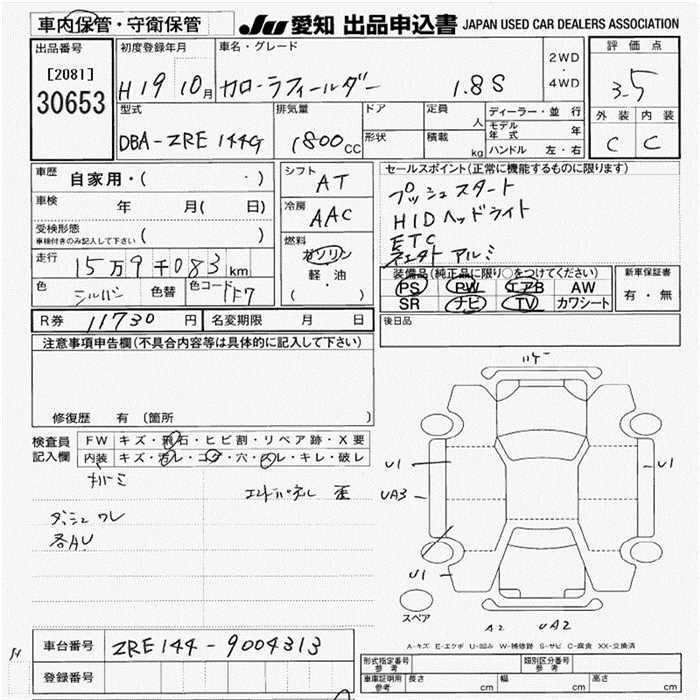 車内保管・守衛保管
JU 愛知 出品申込書 JAPAN USED CAR DEALERS ASSOCIATION
出品番号
[2081]
30653
初度登録年月
H19 10月
車名・グレード
カローラフィールダー 1.8S
2WD
・
4WD
評価点
3.5
外装 内装
C C
型式
DBA-ZRE144G
排気量
1800cc
ドア
形状
定員
人
積載
kg
ディーラー・並行
モデル年式 年
ハンドル 左・右
車歴
自家用・( ・ )
車検
年 月( 日)
受検形態
車検付きのみ記入して下さい ( )
走行
15万9千083km
色
シルバー
色替
色コード
1F7
シフト
AT
冷房
AAC
燃料
ガソリン
軽・油
( ・ )
セールスポイント(正常に機能するものに限ります)
プッシュスタート
HIDヘッドライト
ETC
アルミ
装備品(純正品に限り○をつけてください)
PS PW エアB AW
SR ナビ TV カワシート
新車保証書
有・無
R券 11730円
名変期限 月 日
後日品
注意事項申告欄(不具合内容等は具体的に記入して下さい)
修復歴 有 (箇所 )
検査員
記入欄
FW キズ・飛石・ヒビ割・リペア跡・X要
内装 キズ・汚レ・コゲ・穴・スレ・キレ・破レ
エンドパネル 歪
ダッシュ ワレ
各AU
ハゲ
U1
UA3
U1
U1
スペア
A2 UA2
A-キズ E-エクボ U-凹み W-補修跡 S-サビ C-腐食 XX-交換済
車台番号 ZRE144-9004313
登録番号
形式指定番号
参考
類別区分番号
参考
車庫証明用
参考
長さ cm 幅 cm 高さ cm